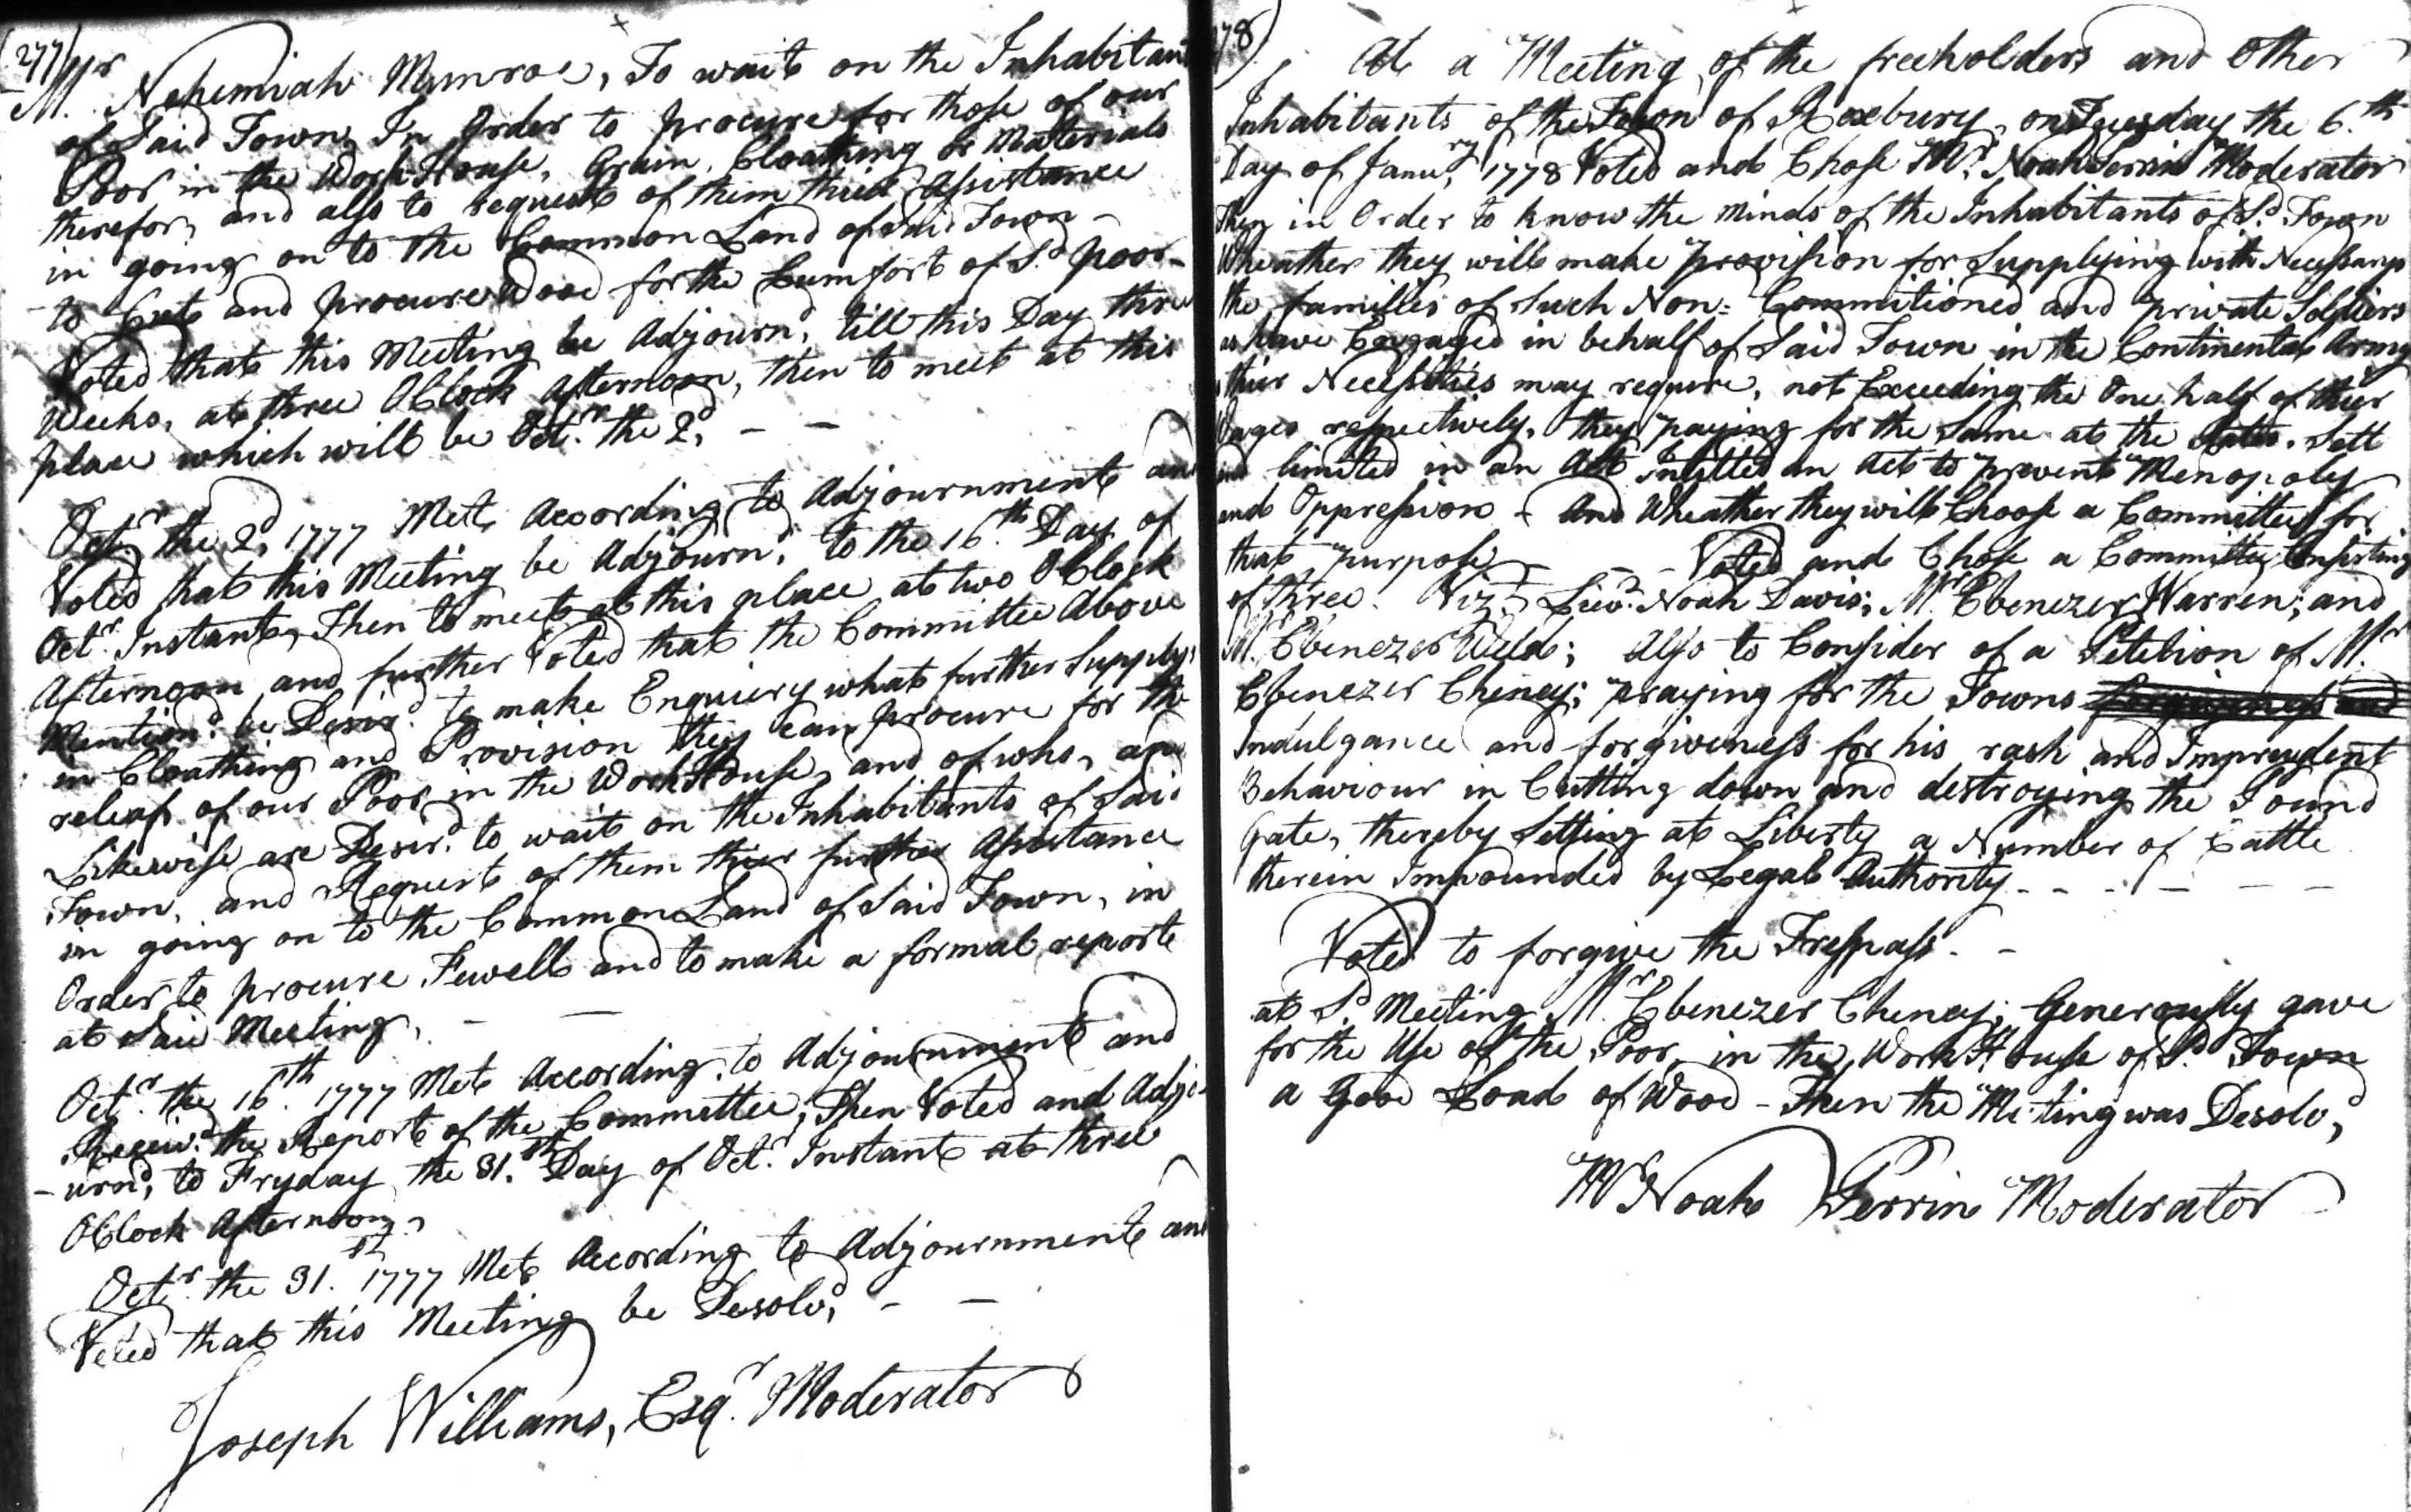 (277)
Mr. Nehemiah Munroe, To wait on the Inhabitan
of Said Town, In Order to procure for those of our
Poor in the Work House, Grain, Cloathing or Materials
therefor, and also to request of them their Assistance
in going on to the Common Land of Said Town -
to Cut and procure Wood for the Cumfort of Sd. poor -
Voted that this Meeting be Adjournd, till this Day thre
Weeks, at three OClock Afternoon, then to meet at this
place which will be Octr. the 2d, - -
Octr. the 2d, 1777 Met According to Adjournment an
Voted that this Meeting be Adjournd, to the 16th. Day of
Octr. Instant, Then to meet at this place at two OClock
Afternoon and further Voted that the Committee Above
Mentiond. be Desird. to make Enquiery what further Supply
in Cloathing and Provision they can procure for the
releaf of our Poor in the Work House, and of who, an
Likewise are Desird. to wait on the Inhabitants of Said
Town, and Request of them their further Assistance
in going on to the Common Land of Said Town, in
Order to procure Fewell and to make a formal report
at Said Meeting, - -
Octr. the 16th. 1777 Met According to Adjournment and
Receivd. the Report of the Committee, Then Voted and Adjo
-urnd, to Fryday the 31.st Day of Octr. Instant at three
OClock Afternoon,
Octr. the 31.st 1777 Met According to Adjournment an
Voted that this Meeting be Desolvd, - -
Joseph Williams, Esqr. Moderator
78)
At a Meeting of the freeholders and Other
Inhabitants of the Town of Roxbury, on Tuesday the 6.th
Day of Janury, 1778 Voted and Chose Mr. Noah Perrin Moderator
Then in Order to know the Minds of the Inhabitants of Sd. Town
Wheather they will make provision for Supplying with Necessarys
the families of Such Non= Commitioned and private Soldiers
as have Engaged in behalf of Said Town in the Continental Army
their Necessities may require, not Exceeding the One half of their
Wages respectively, they paying for the Same at the Rates, Sett
and limited in an Act Intitled an Act to prevent Menopoly
and Oppression - And Wheather they will Choose a Committee for
that purpose - - - Voted and Chose a Committee Consisting
of three. Vizt. Lieut. Noah Davis; Mr. Ebenezer Warren; and
Mr. Ebenezer Weld; Also to Consider of a Petetion of Mr.
Ebenezer Cheney; praying for the Towns forgiveness and
Indulgance and forgiveness for his rash and Imprudent
Behaviour in Cutting down and destroying the Pound
Gate, thereby Setting at Liberty a Number of Cattle
therein Impounded by Legal Authority - - - - - -
Voted to forgive the Trespass. -
at Sd. Meeting Mr. Ebenezer Cheney; Generously gave
for the Use of the Poor, in the Work House of Sd. Town
a Good Load of Wood - Then the Meeting was Desolvd,
Mr Noah Perrin Moderator